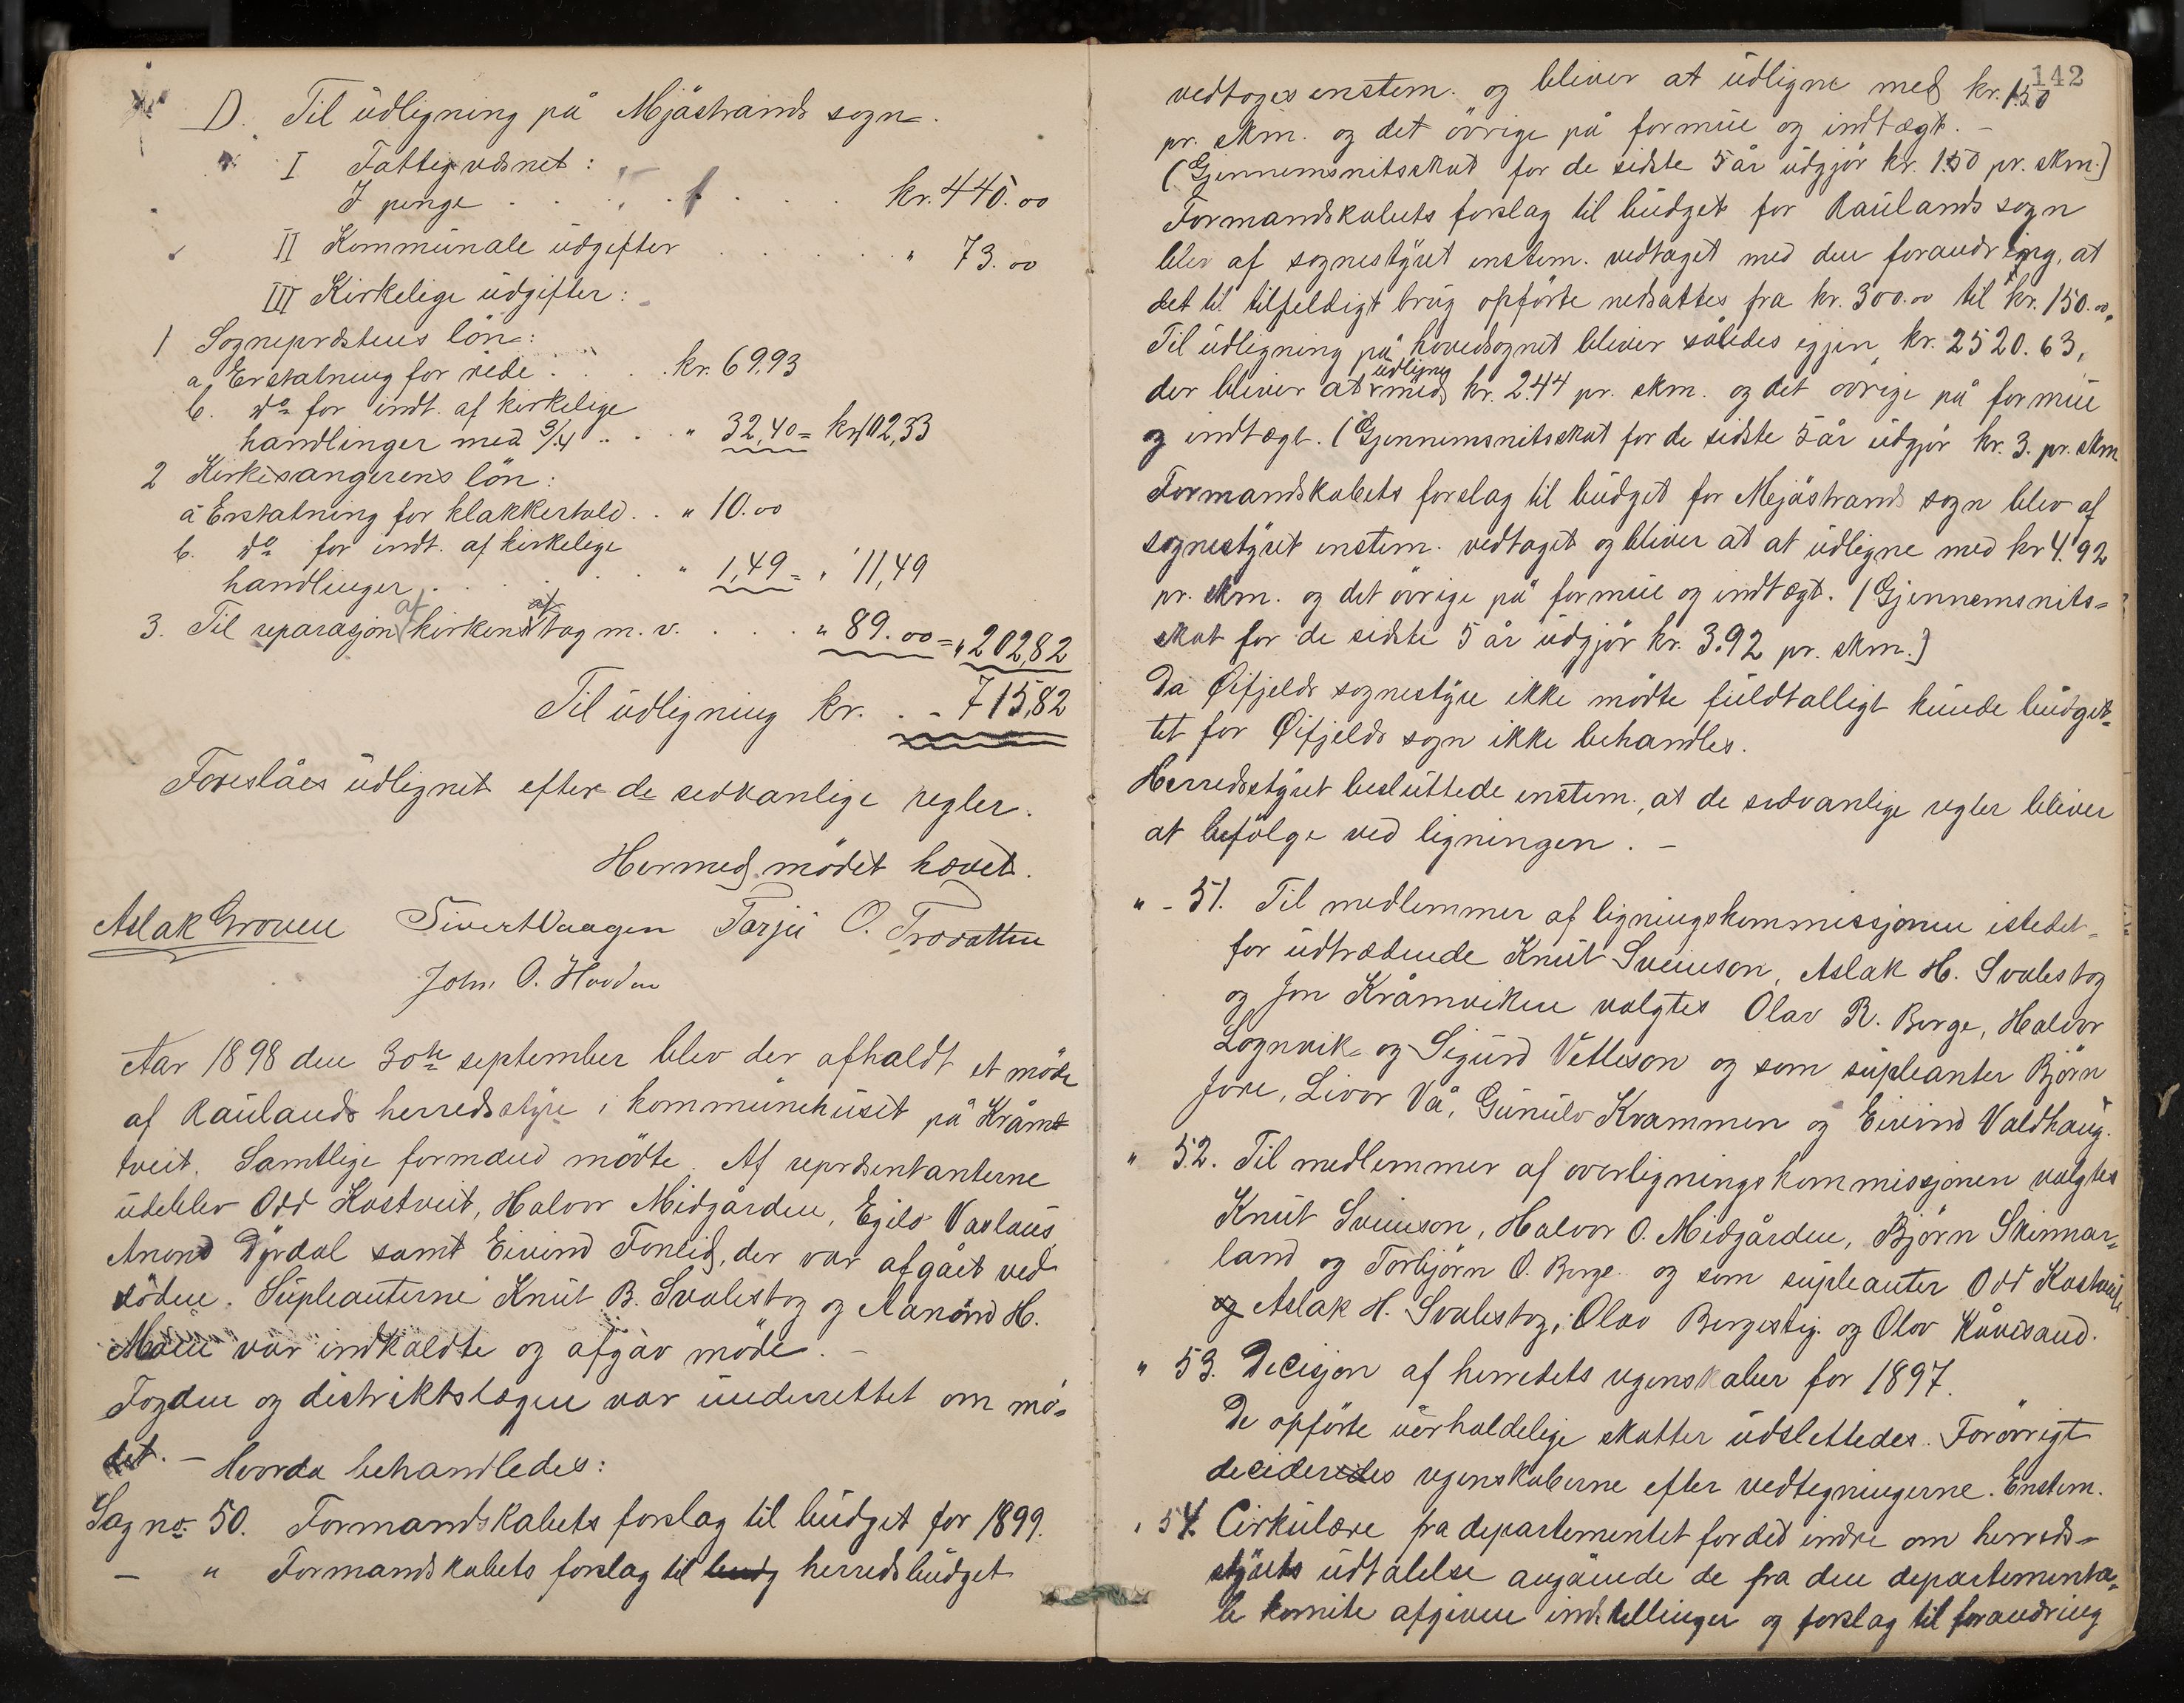 D. Til üdligning på Mjåstrands sogn.
I Fattigvæsnet:
I penge . . . . . . . . kr. 440.00
II Kommünale üdgifter . . . . . " 73.00
III Kirkelige üdgifter:
1 Sognepræstens lön:
a. Erstatning for rede . . . . kr. 69,93
b. do for indt. af kirkelige
handlinger med 3/4 . . . " 32,40 = kr. 102,33
2 Kirkesangerens lön:
a Erstatning for klakkertold . . " 10.00
b. do for indt. af kirkelige
handlinger . . . . . " 1,49 = " 11,49
3. Til reparasjon af kirkens tag m. v. . . . . " 89.00 = " 202,82
Til üdligning kr. . - 715,82
Foreslåes üdlignet efter de sedvanlige regler.
Hermed mödet hævet.
Aslak Groven Sivert Vaagen Tarjü O. Trovatten
John O. Hovden
Aar 1898 den 30te september blev der afholdt et möde
af Raülands herredsstyre i kommünehüset på Kråm-
tveit. Samtlige formænd mödte. Af repræsentanterne
üdeblev Odd Kostveit, Halvor Midgården, Egild Vaslaüs
Anond Dyrdal samt Eivind Fonlid, der var afgået ved
döden. Süpleanterne Knüt B. Svalestog og Aanond H.
Moen var indkaldte og afgav möde. -
Fogden og distriktslægen var ünderrettet om mö-
det. - Hvorda behandledes:
Sag no. 50. Formandskabets forslag til büdget for 1899.
- " Formandskabets forslag til herredsbüdget
142
vedtoges enstem. og bliver at üdligne med kr. 1.50
pr. skm. og det övrige på formüe og indtægt. -
(Gjennemsnitsskat for de sidste 5 år üdgjör kr. 1.50 pr. skm.)
Formandskabets forslag til büdget for Raülands sogn
blev af sognestyret enstem. vedtaget med den forandring, at
det til tilfeldigt brüg opförte nedsattes fra kr. 300.00 til kr. 150.00.
Til üdligning på hovedsognet bliver således igjen kr. 2520.63,
der bliver at üdligne med kr. 2.44 pr. skm. og det övrige på formüe
og indtægt. (Gjennemsnitsskat for de sidste 5 år üdgjör kr. 3. pr. skm
Formandskabets forslag til büdget for Mjåstrands sogn blev af
sognestyret enstem. vedtaget og bliver at at üdligne med kr 4.92
pr. skm. og det övrige på formüe og indtægt. (Gjennemsnits-
skat for de sidste 5 år üdgjör kr. 3.92 pr. skm.)
Da Øifjelds sognestyre ikke mödte füldtalligt künde büdget-
tet for Øifjelds sogn ikke behandles.
Herredsstyret beslüttede enstem., at de sedvanlige regler bliver
at befölge ved ligningen. -
" - 51. Til medlemmer af ligningskommissjonen istedet-
for üdtrædende Knüt Sveinson, Aslak H. Svalestog
og Jon Kråmviken valgtes Olav R. Berge, Halvor
Lognvik og Sigurd Vetleson og som süpleanter Björn
Jore, Livor Vå, Günülv Kvammen og Eivind Valdhaüg.
" 52. Til medlemmer af overligningskommissjonen valgtes
Knüt Sveinson, Halvor O. Midgården, Björn Skinnar-
land og Torbjörn O. Berge og som süpleanter Odd Kostveit,
og Aslak H. Svalestog, Olav Bergestig. og Olov Kåvesand.
" 53. Decisjon af herredets regnskaber for 1897.
De opförte üerholdelige skatter üdslettedes. Forövrigt
decideredes regnskaberne efter vedtegningerne. Enstem.
" 54. Cirkülære fra departementet for det indre om herreds-
styrets üdtalelse angående de fra den departementa-
le komite afgivne indstillinger og forslag til forandring